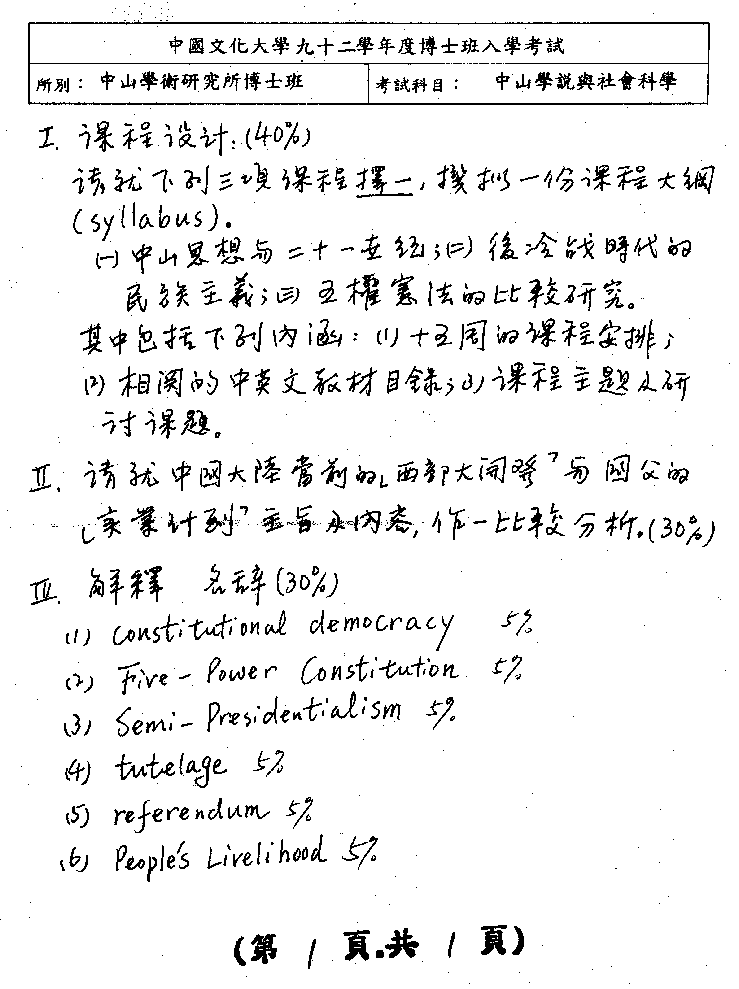 中國文化大學九十二學年度博士班入學考試
所別： 中山學術研究所博士班 考試科目： 中山學說與社會科學
I. 课程设计:(40%)
请就下列三項课程擇一,擬拟一份课程大綱
(syllabus)。
(一)中山思想与二十一世纪;(二)後冷战時代的
民族主義;(三)五權憲法的比較研究。
其中包括下列内涵:(1)十五周的课程安排;
(2)相関的中英文教材目錄;(3)课程主題及研
讨课題。
II. 请就中國大陸當前的「西部大開發」与國父的
「实業計划」主旨及内容,作一比較分析。(30%)
III. 解釋 名辞(30%)
(1) constitutional democracy 5%
(2) Five-Power Constitution 5%
(3) Semi-Presidentialism 5%
(4) tutelage 5%
(5) referendum 5%
(6) People's Livelihood 5%
(第 1 頁.共 1 頁)